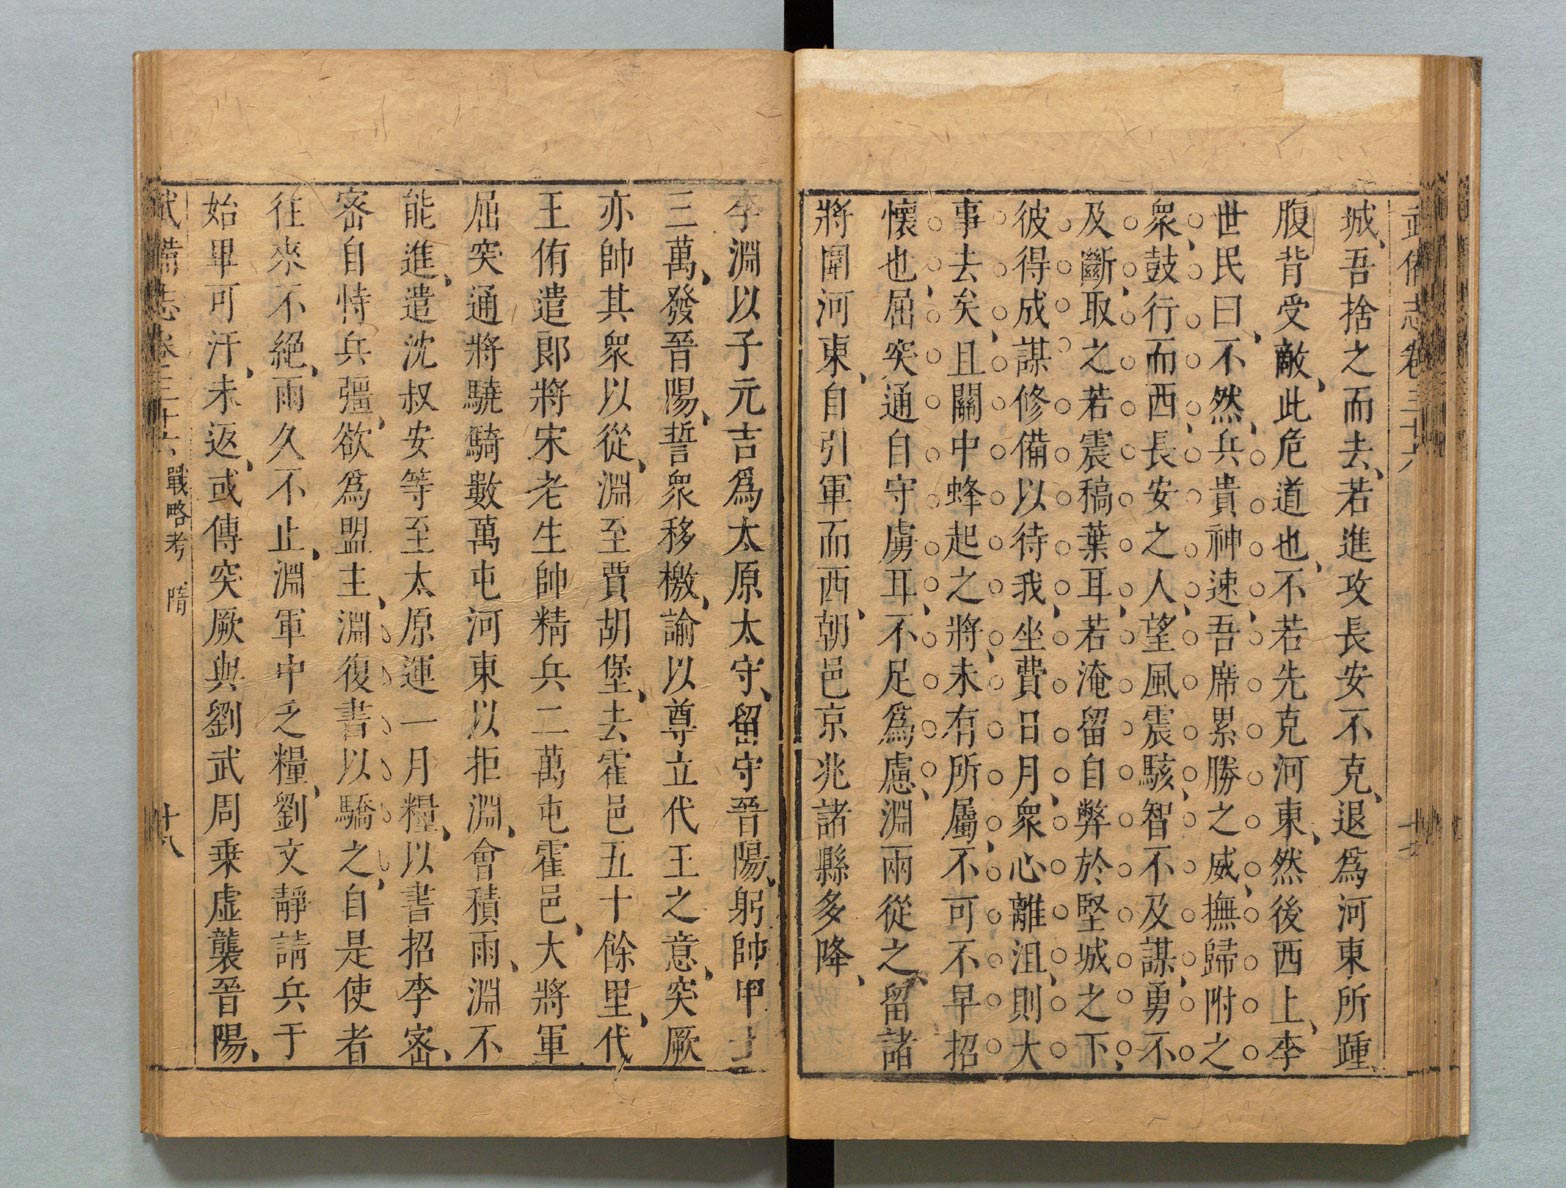 武備志卷三十六
城吾捨之而去若進攻長安不克退爲河東所踵
腹背受敵此危道也不若先克河東然後西上李
世民曰不然兵貴神速吾席累勝之威撫歸附之
衆鼓行而西長安之人望風震駭智不及謀勇不
及斷取之若震稿葉耳若淹留自弊於堅城之下
彼得成謀修備以待我坐費日月衆心離沮則大
事去矣且關中蜂起之將未有所屬不可不早招
懷也屈突通自守虜耳不足爲慮淵兩從之留諸
將圍河東自引軍而西朝邑京兆諸縣多降
李淵以子元吉爲太原太守留守晉陽躬帥甲士
三萬發晉陽誓衆移檄諭以尊立代王之意突厥
亦帥其衆以從淵至賈胡堡去霍邑五十餘里代
王侑遣郎將宋老生帥精兵二萬屯霍邑大將軍
屈突通將驍騎數萬屯河東以拒淵會積雨淵不
能進遣沈叔安等至太原運一月糧以書招李密
密自恃兵彊欲爲盟主淵復書以驕之自是使者
往來不絕雨久不止淵軍中乏糧劉文靜請兵于
始畢可汗未返或傳突厥與劉武周乗虛襲晉陽
武備志卷三十六 戰略考 隋 十八